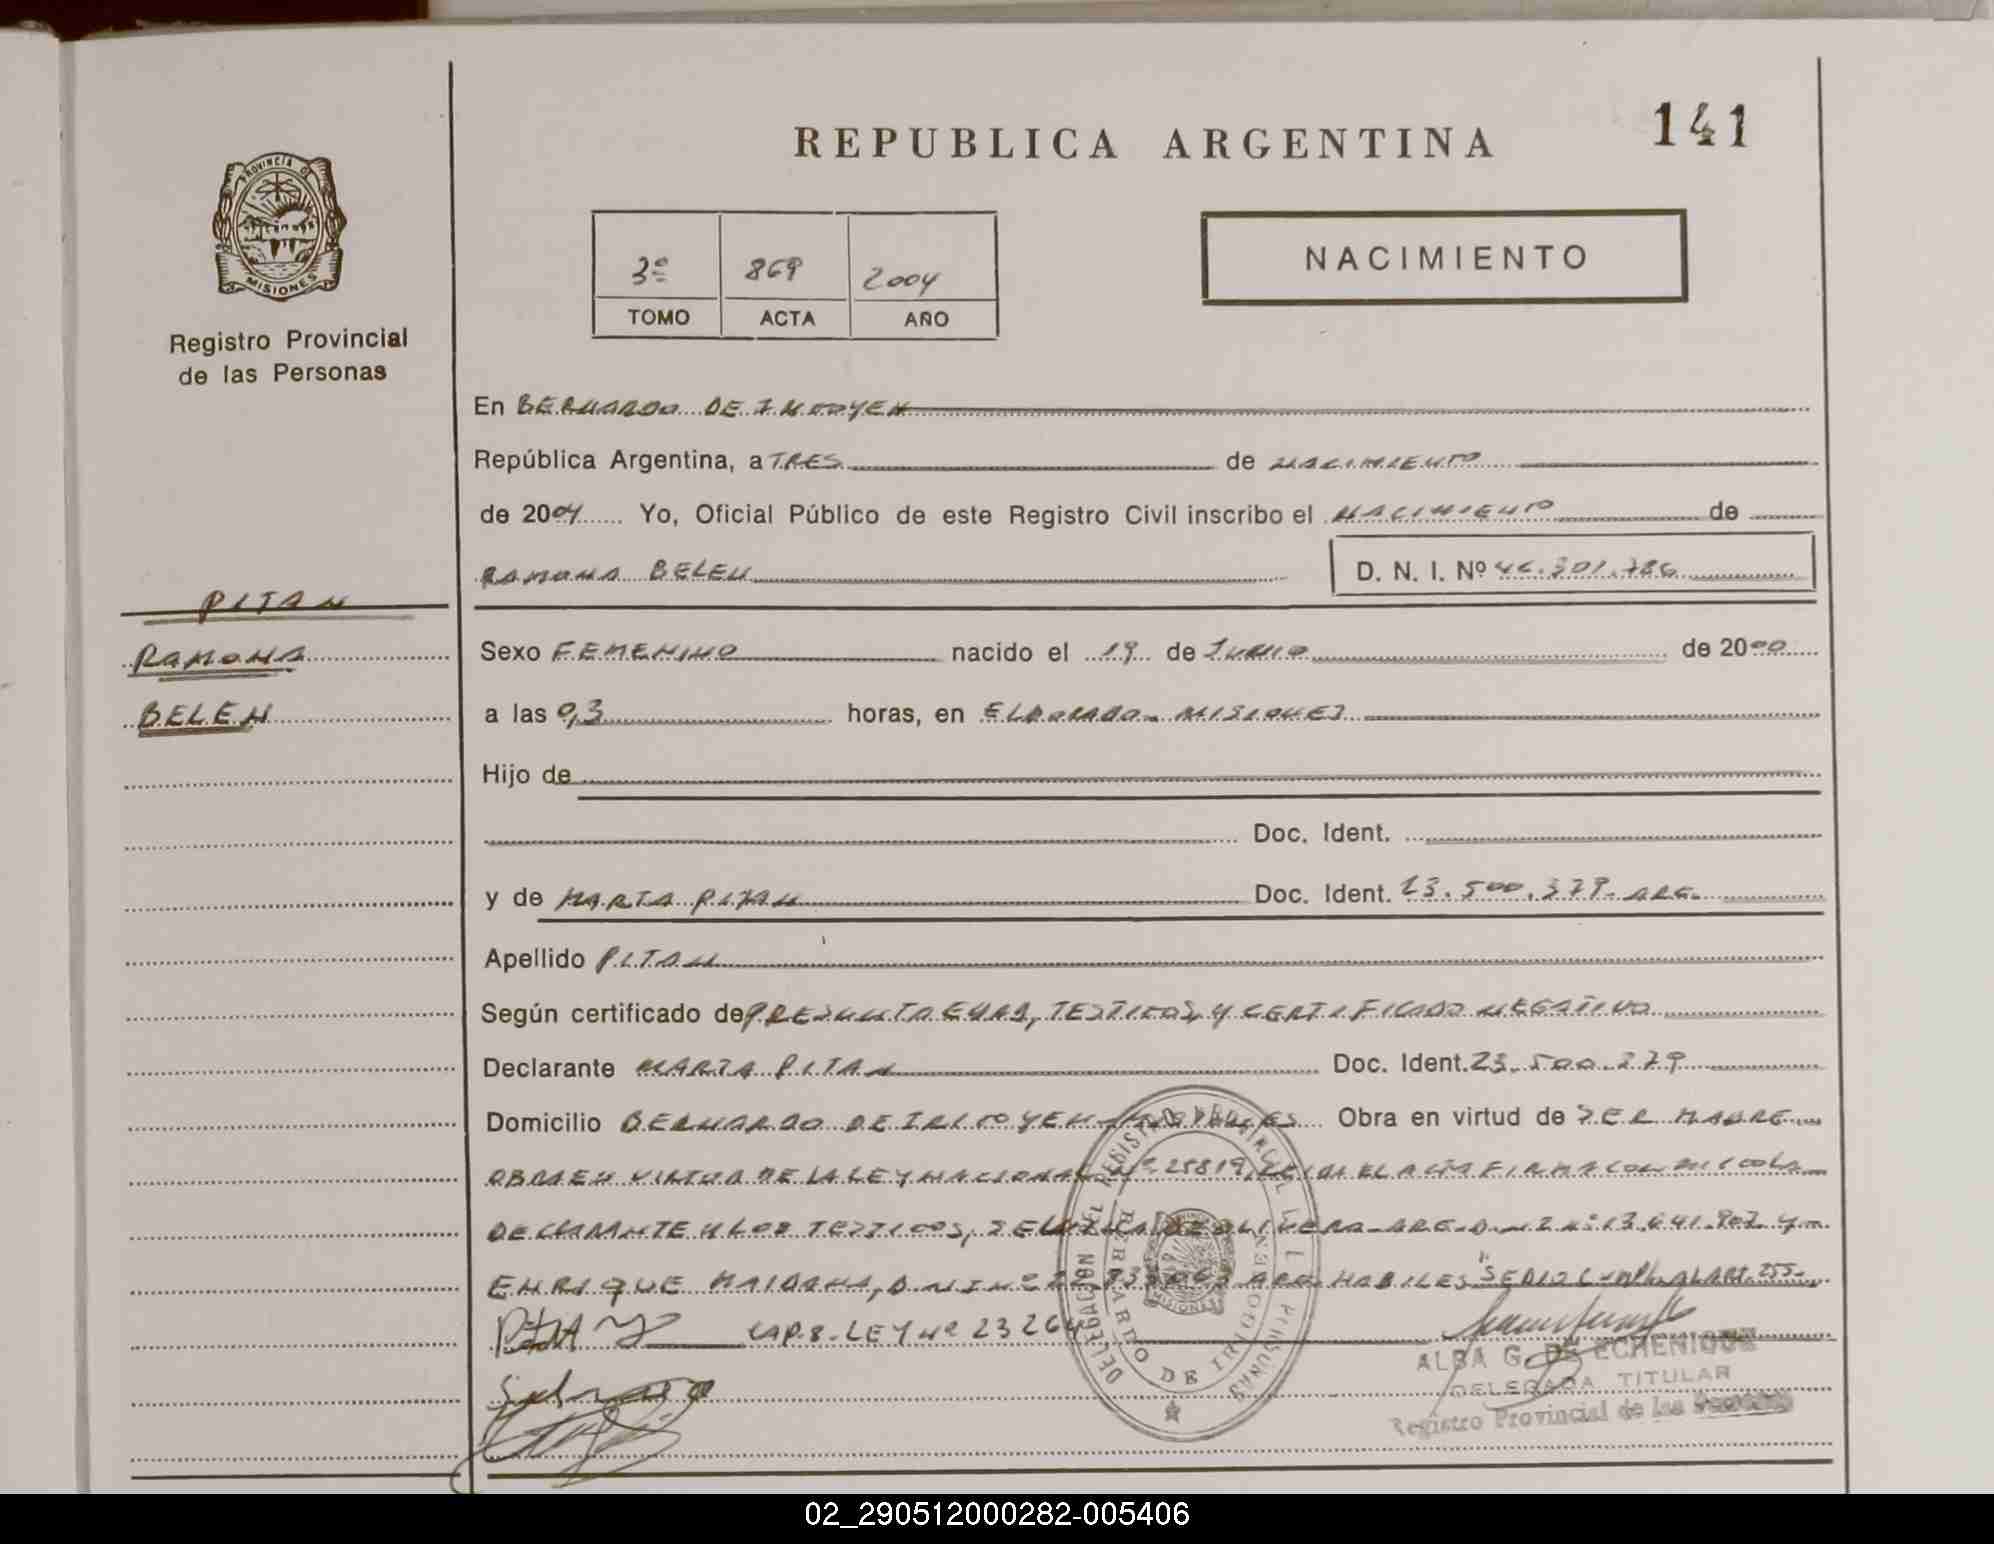 REPUBLICA ARGENTINA
141
PROVINCIA DE
MISIONES
Registro Provincial
de las Personas
3º 869 2004
TOMO ACTA AÑO
NACIMIENTO
En BERNARDO DE IRIGOYEN
República Argentina, a TRES de NACIMIENTO
de 2004 Yo, Oficial Público de este Registro Civil inscribo el NACIMIENTO de
RAMONA BELEN D. N. I. Nº 301.786
PITAN
RAMONA
BELEN
Sexo FEMENINO nacido el 19 de de 2000
a las 0,3 horas, en ELDORADO - MISIONES
Hijo de
Doc. Ident.
y de MARTA PITAN Doc. Ident. 23.500.379. ARG.
Apellido PITAN
Según certificado de PRESUNTA EDAD, TESTIGOS, Y CERTIFICADO NEGATIVO
Declarante MARTA PITAN Doc. Ident. 23.500.379
Domicilio BERNARDO DE IRIGOYEN - MISIONES Obra en virtud de SER MADRE
OBRA EN VIRTUD DE LA LEY NACIONAL Nº 25819, LEIDA EL ACTA FIRMA CON MIGO LA
DECLARANTE Y LOS TESTIGOS, DE OLIVERA - ARG - D.N.I Nº 13.641.967 Y
ENRIQUE MAIDANA, D.N.I Nº ARG. HABILES "SE DIO CUMPL. AL ART. 255
PITAN CAP. 8 - LEY Nº 23264
DELEGACION DEL REGISTRO PROVINCIAL DE LAS PERSONAS
BERNARDO DE IRIGOYEN
MISIONES
ALBA G. DE ECHENIQUE
DELEGADA TITULAR
Registro Provincial de las Personas
02_290512000282-005406